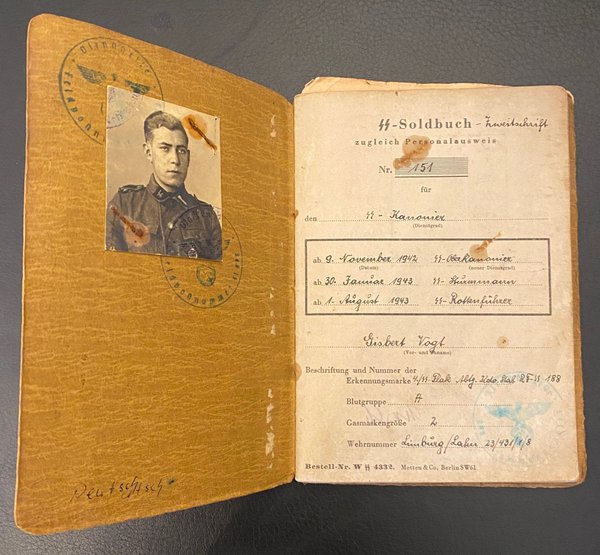 Deutsch
ϟϟ-Soldbuch - Zweitschrift
zugleich Personalausweis
Nr. 151
für
den ϟϟ-Kanonier
(Dienstgrad)
ab 9. November 1942 ϟϟ-Oberkanonier
(Datum) (neuer Dienstgrad)
ab 30. Januar 1943 ϟϟ-Sturmmann
ab 1. August 1943 ϟϟ-Rottenführer
Gisbert Vogt
(Vor- und Zuname)
Beschriftung und Nummer der
Erkennungsmarke 4/ϟϟ Flak Abtg. Kdo. Stab RF-ϟϟ 188
Blutgruppe A
Gasmaskengröße 2
Wehrnummer Limburg/Lahn 23/431/1/8
Bestell-Nr. W ϟϟ 4332. Metten & Co., Berlin SW 61.